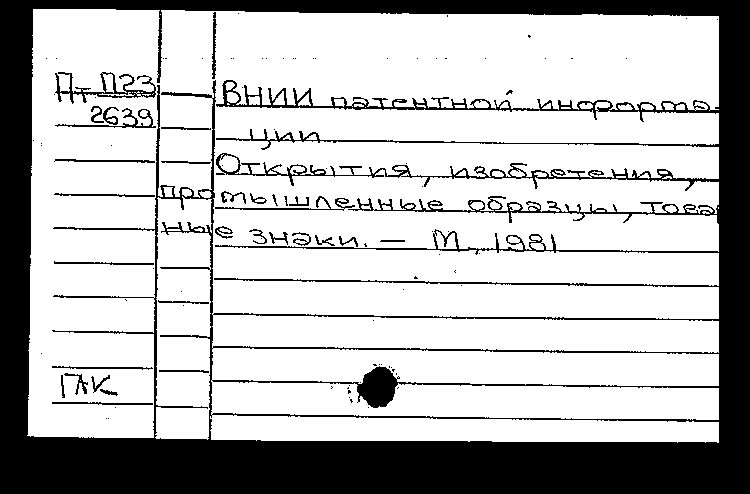 Пт П23
2639
ВНИИ патентной информа-
ции
Открытия, изобретения,
промышленные образцы, товар
ные знаки. — М., 1981
ГАК